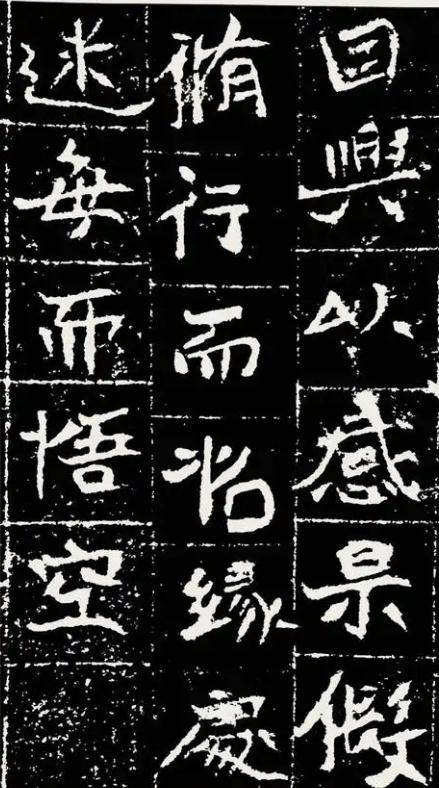 因興以感果假
脩行而招緣處
迷每而悟空